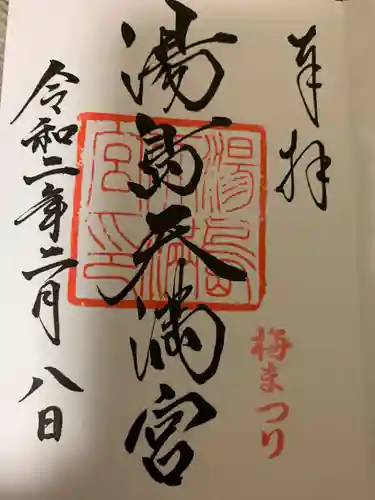 奉拝
湯島天満宮
湯島天満宮印
梅まつり
令和二年二月八日